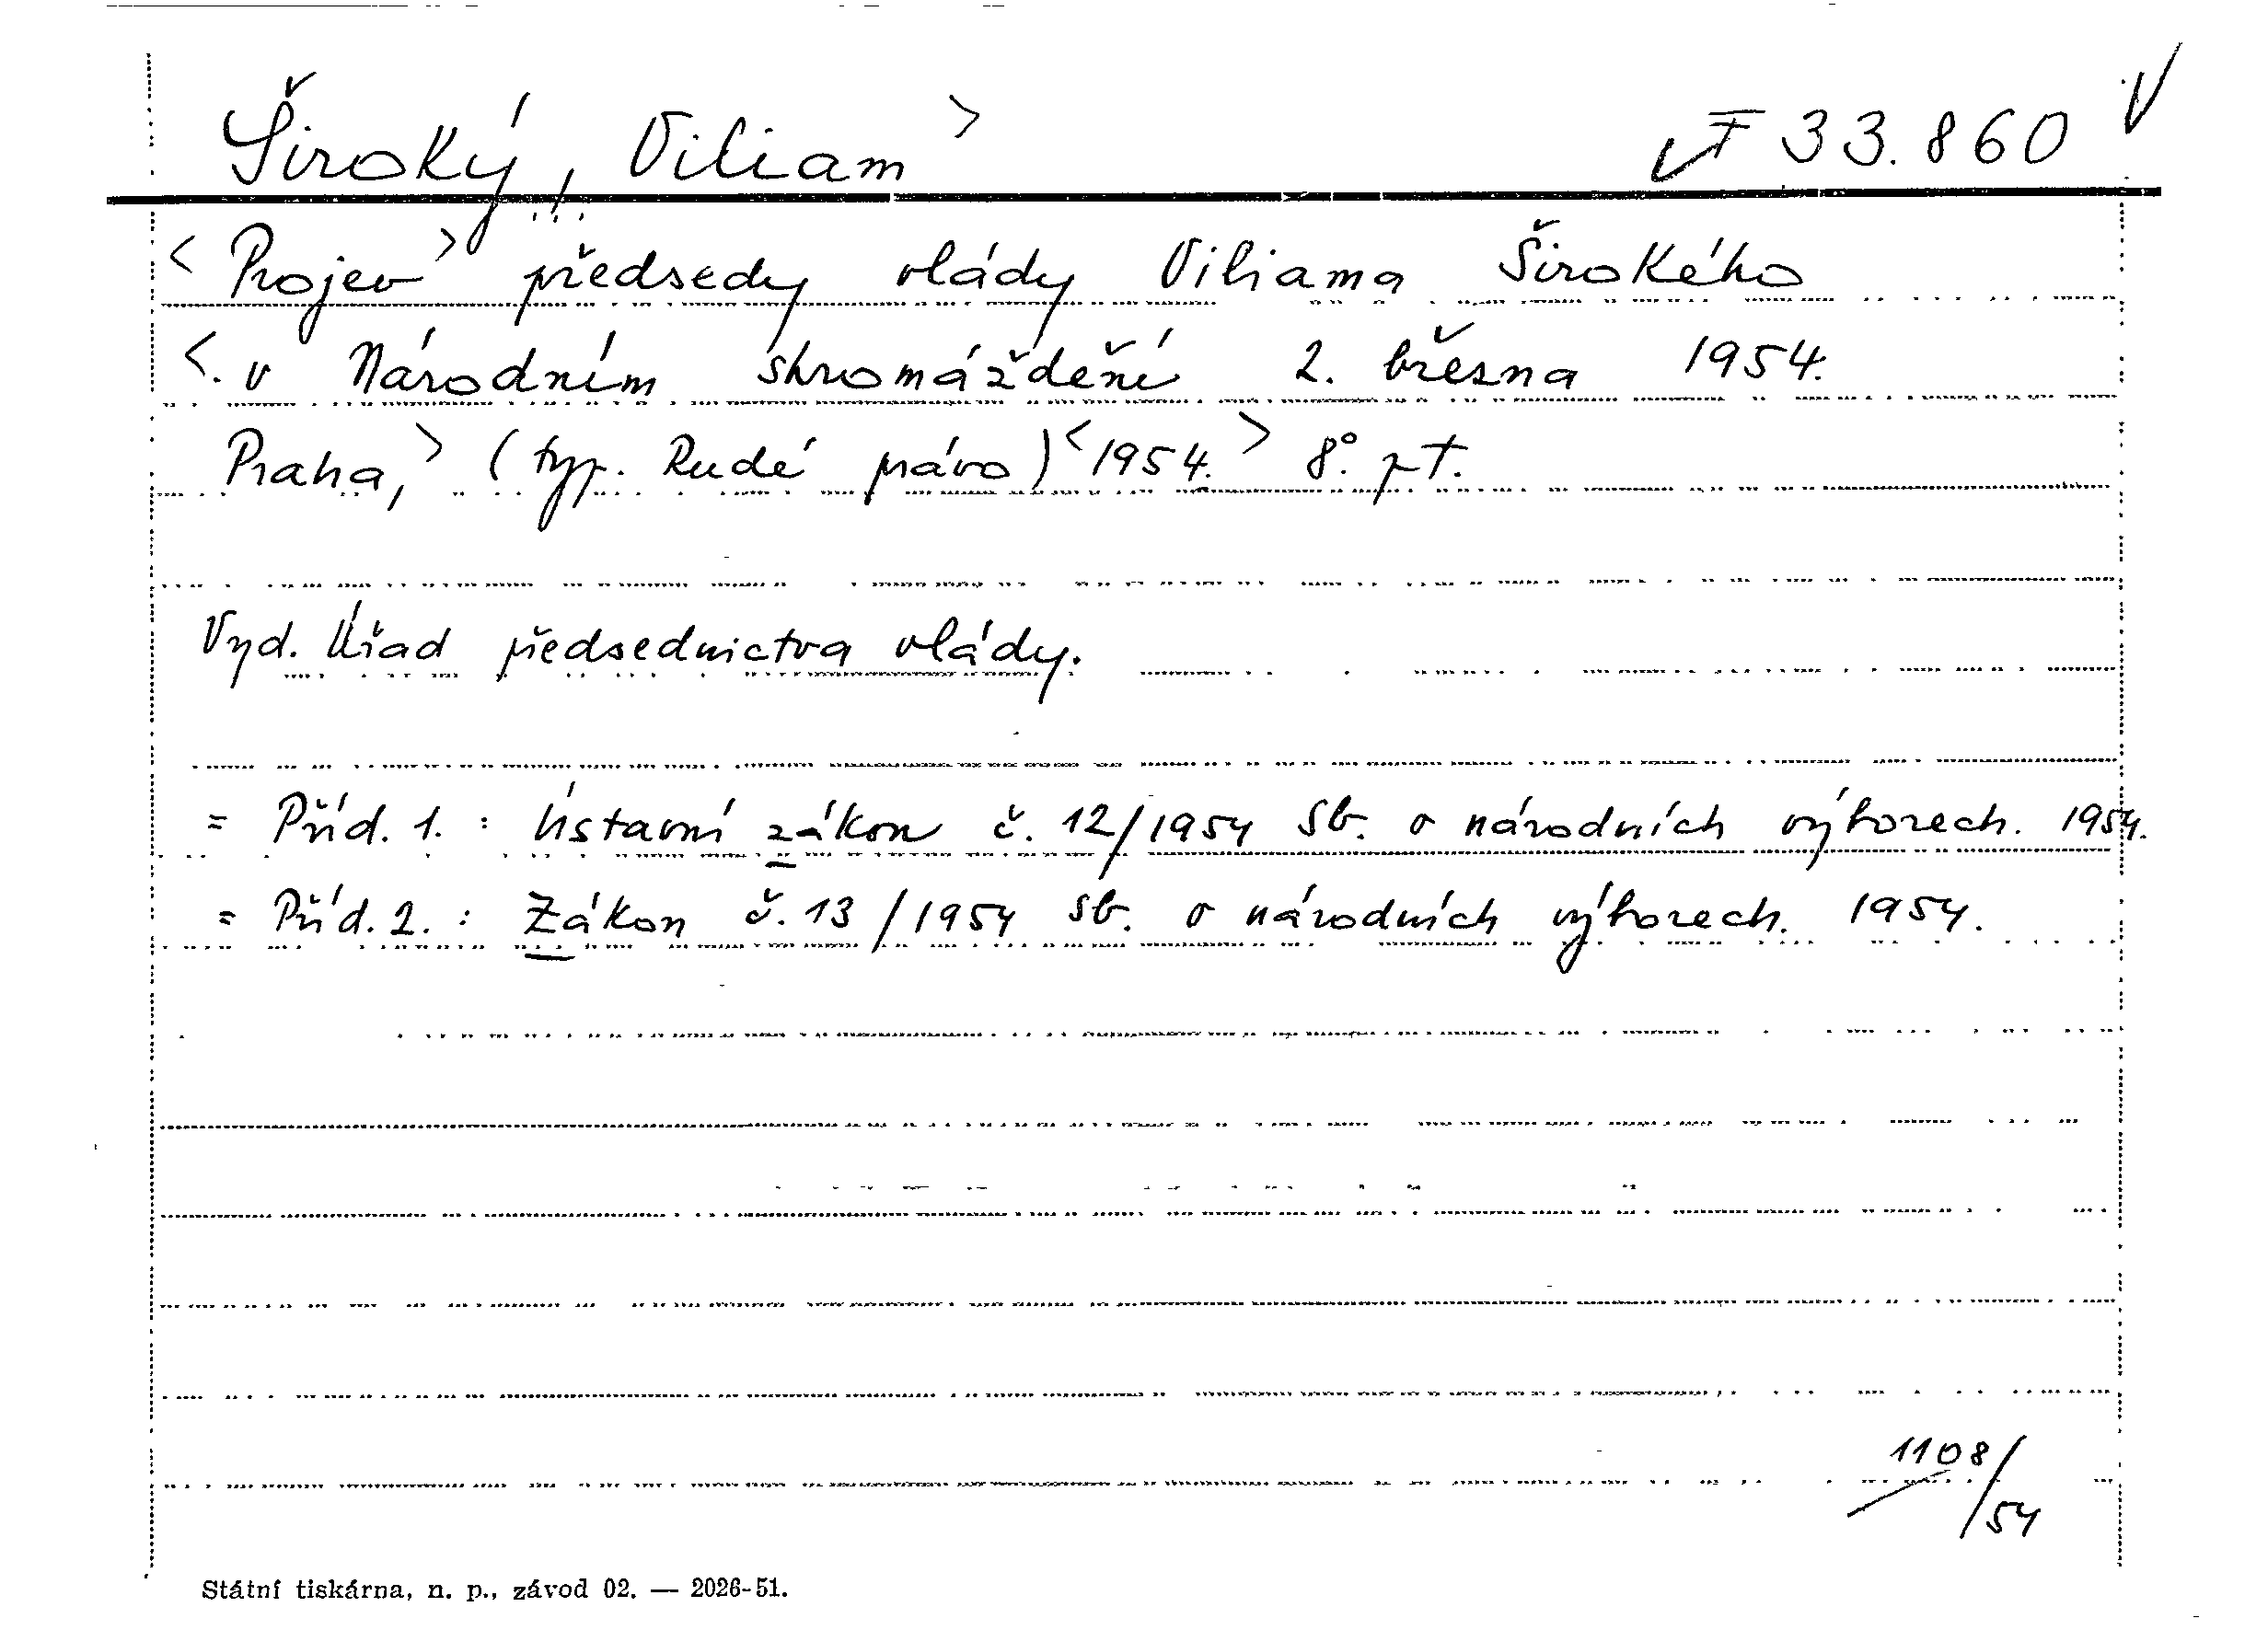 Široký, Viliam > F 33.860
< Projev > předsedy vlády Viliama Širokého
<. v Národním shromáždění 2. března 1954.
Praha, > (typ. Rudé právo) < 1954. > 8°. pT.
Vyd. Úřad předsednictva vlády.
= Příd. 1. : Ústavní zákon č. 12/1954 Sb. o národních výborech. 1954.
= Příd. 2. : Zákon č. 13/1954 Sb. o národních výborech. 1954.
1108/54
Státní tiskárna, n. p., závod 02. — 2026-51.